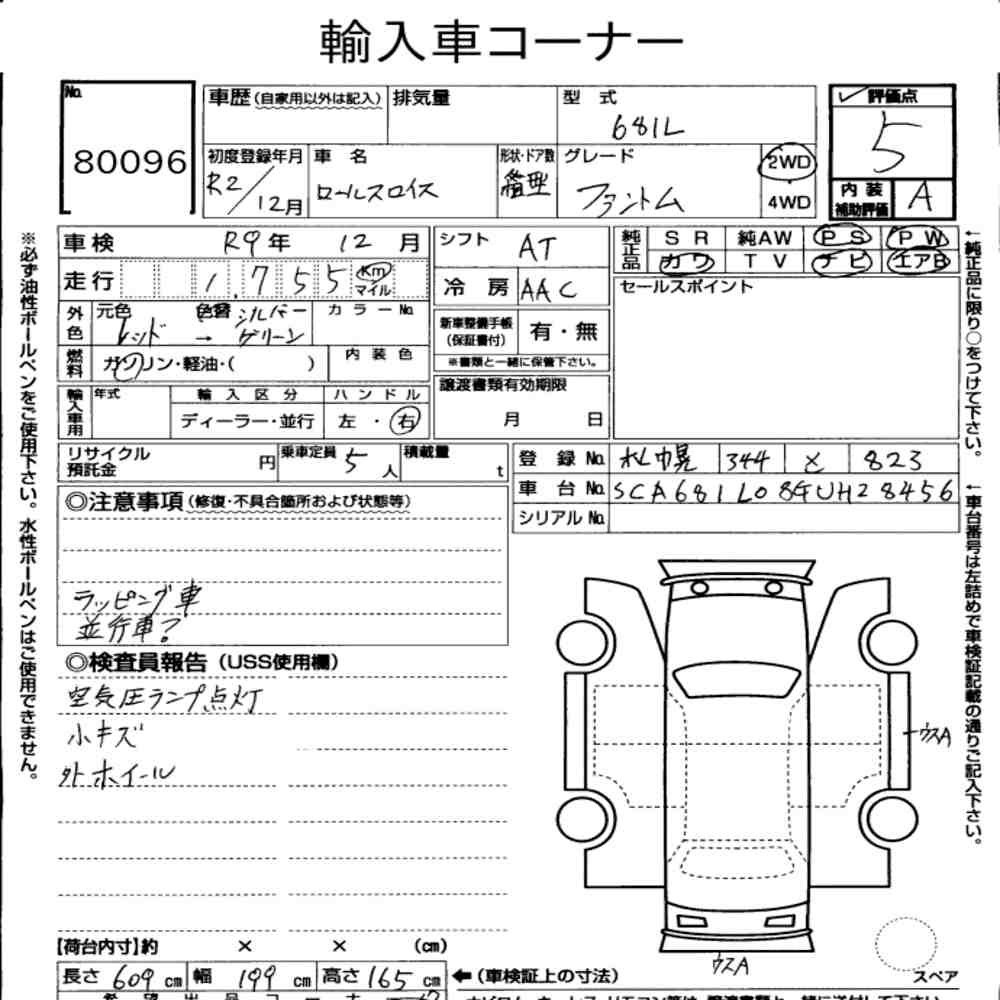 輸入車コーナー
No. 80096
車歴(自家用以外は記入) 排気量 型 式 681L
初度登録年月 R2/12月 車 名 ロールスロイス 形状・ドア数 箱型 グレード ファントム 2WD 4WD
評価点 5
内装補助評価 A
車検 R9年 12月 シフト AT
純正品 SR 純AW PS PW
カワ TV ナビ エアB
走行 1,755 Km マイル 冷房 AAC
セールスポイント
外色 元色 レッド 色替 → シルバー グリーン カラーNo.
新車整備手帳(保証書付) 有・無
※書類と一緒に保管下さい。
燃料 ガソリン・軽油・( ) 内装色
譲渡書類有効期限 月 日
輸入車用 年式 輸入区分 ディーラー・並行 ハンドル 左・右
リサイクル預託金 円 乗車定員 5人 積載量 t
登録No. 札幌 344 823
車台No. SCA681L08
シリアルNo.
◎注意事項(修復・不具合箇所および状態等)
ラッピング車
並行車?
◎検査員報告(USS使用欄)
空気圧ランプ点灯
小キズ
外ホイール
ウスA
ウスA
スペア
【荷台内寸】約 × × (cm)
長さ 609 cm 幅 199 cm 高さ 165 cm ←(車検証上の寸法)
※必ず油性ボールペンをご使用下さい。水性ボールペンはご使用できません。
←純正品に限り○をつけて下さい。
←車台番号は左詰めで車検証記載の通りご記入下さい。